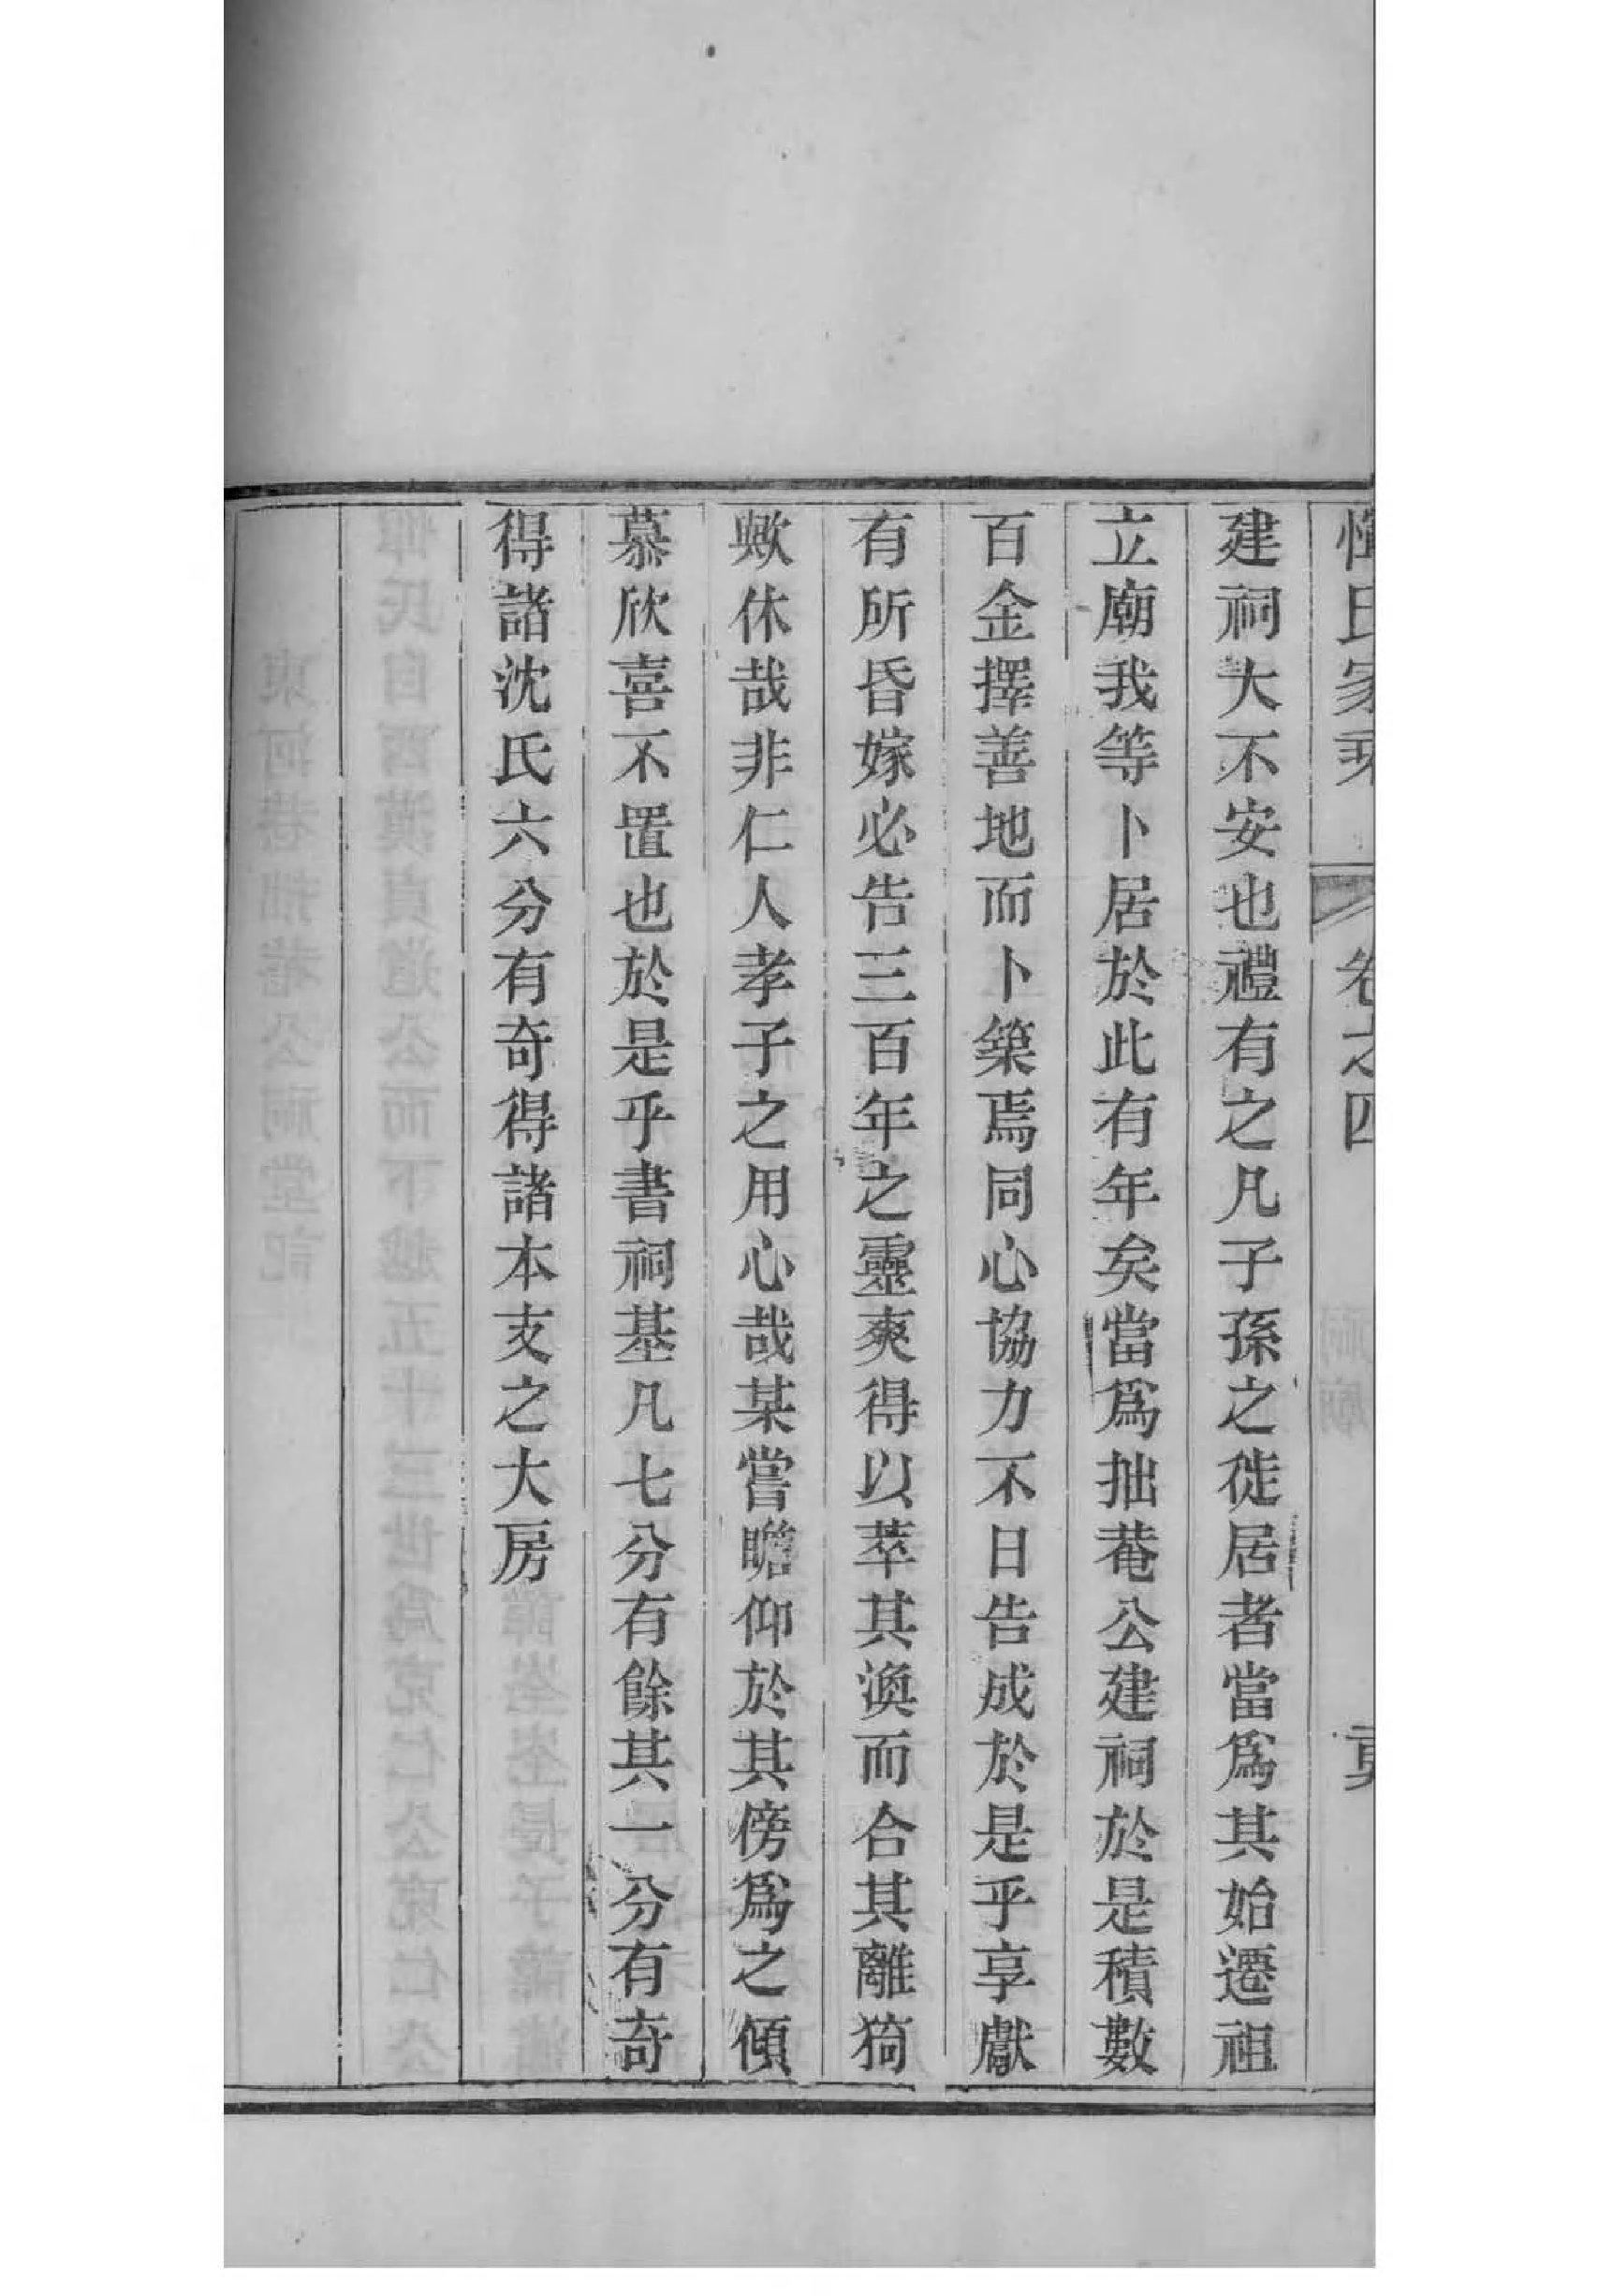 惲氏家乘 卷之四 頁
建祠大不安也禮有之凡子孫之徙居者當爲其始遷祖
立廟我等卜居於此有年矣當爲拙菴公建祠於是積數
百金擇善地而卜築焉同心協力不日告成於是乎享獻
有所昏嫁必告三百年之靈爽得以萃其渙而合其離猗
歟休哉非仁人孝子之用心哉某嘗瞻仰於其傍爲之傾
慕欣喜不置也於是乎書祠基凡七分有餘其一分有奇
得諸沈氏六分有奇得諸本支之大房